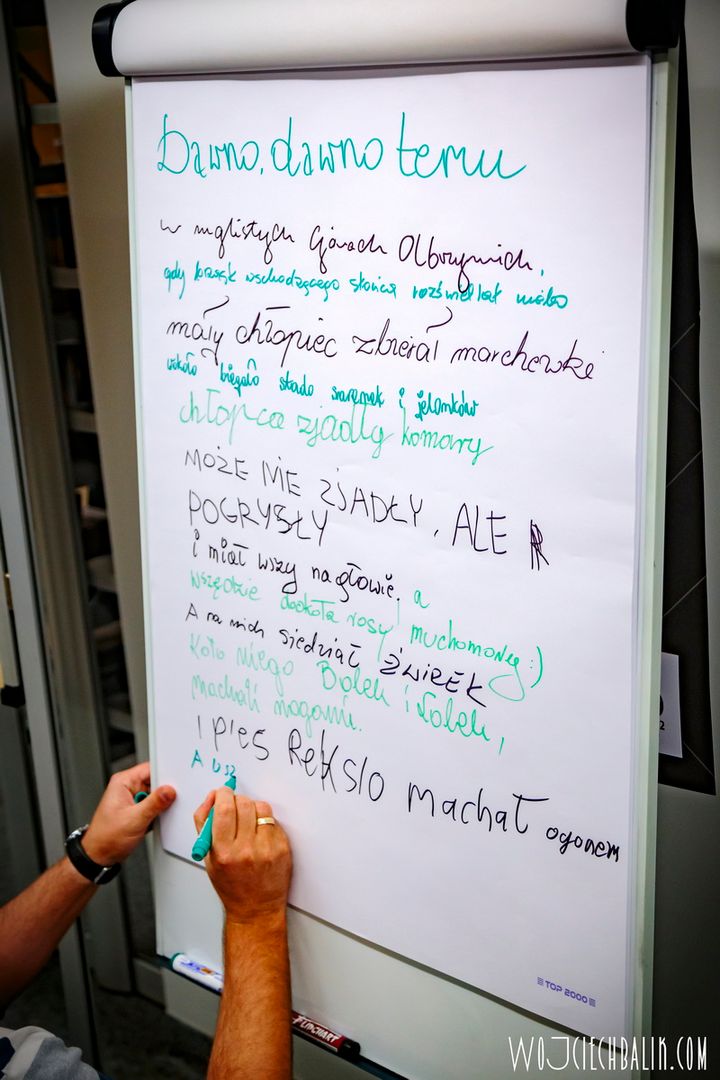 Dawno, dawno temu
w mglistych Górach Olbrzymich,
gdy brzask wschodzącego słońca rozświetlał niebo
mały chłopiec zbierał marchewkę
wokoło biegało stado sarenek i jelonków
chłopca zjadły komary
MOŻE NIE ZJADŁY, ALE
POGRYZŁY
i miał wszy na głowie, a
wszędzie dookoła rosły muchomory :)
A na nich siedział ŻWIREK
Koło niego Bolek i Lolek,
machali nogami.
I pies Reksio machał ogonem
A
TOP 2000
FLIPCHART
WOJCIECHBALIK.COM